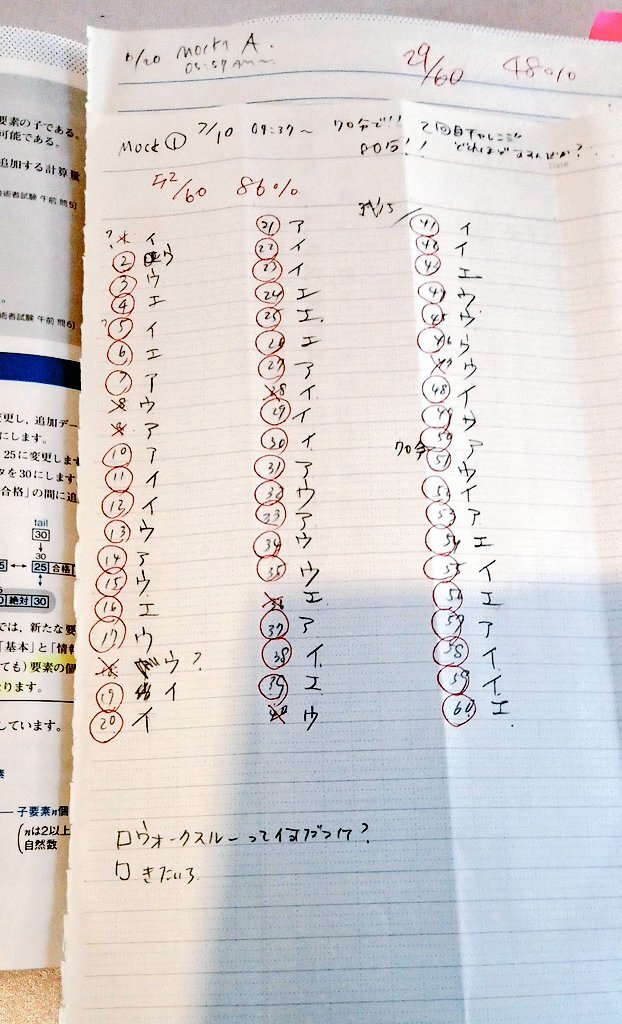 要素の子である。
可能である。
追加する計算量
術者試験 午前 問5]
術者試験 午前 問6]
変更し、追加デー
にします。
25に変更します
タを30にします
合格」の間に追
tail
30
30
25 合格
絶対 30
では、新たな要
「基本」と「情報
ても）要素の個
なります。
しています。
子要素n個
nは2以上
自然数
Mock A.
29/60 48%
Mock① 7/10 09:37~ 70分で!! 2回目チャレンジ
52/60 86%
? イ
2 ウ
3 ウ
4 エ
? 5 イ
6 エ
7 ア
8 ウ
9 ア
10 ア
11 イ
12 イ
13 ウ
14 ア
15 ウ
16 エ
17 ウ
18 ウ?
19 イ
20 イ
21 ア
22 イ
23 イ
24 エ
25 エ.
26 エ
27 ア
28 イ
29 イ
30 イ
31 ア
32 ウ
33 ア
34 ウ
35 ウ
36 エ
37 ア
38 イ.
39 エ
40 ウ
41 イ
イ
エ
ウ
45 ウ
46 ウ
47 ウ
48 イ
49 ウ
50 ア
70分 51 ウ
イ
53 ア
54 エ
55 イ
56 エ
57 ア
58 イ
59 イ
60 エ
□ウォークスルーって何だっけ?
□